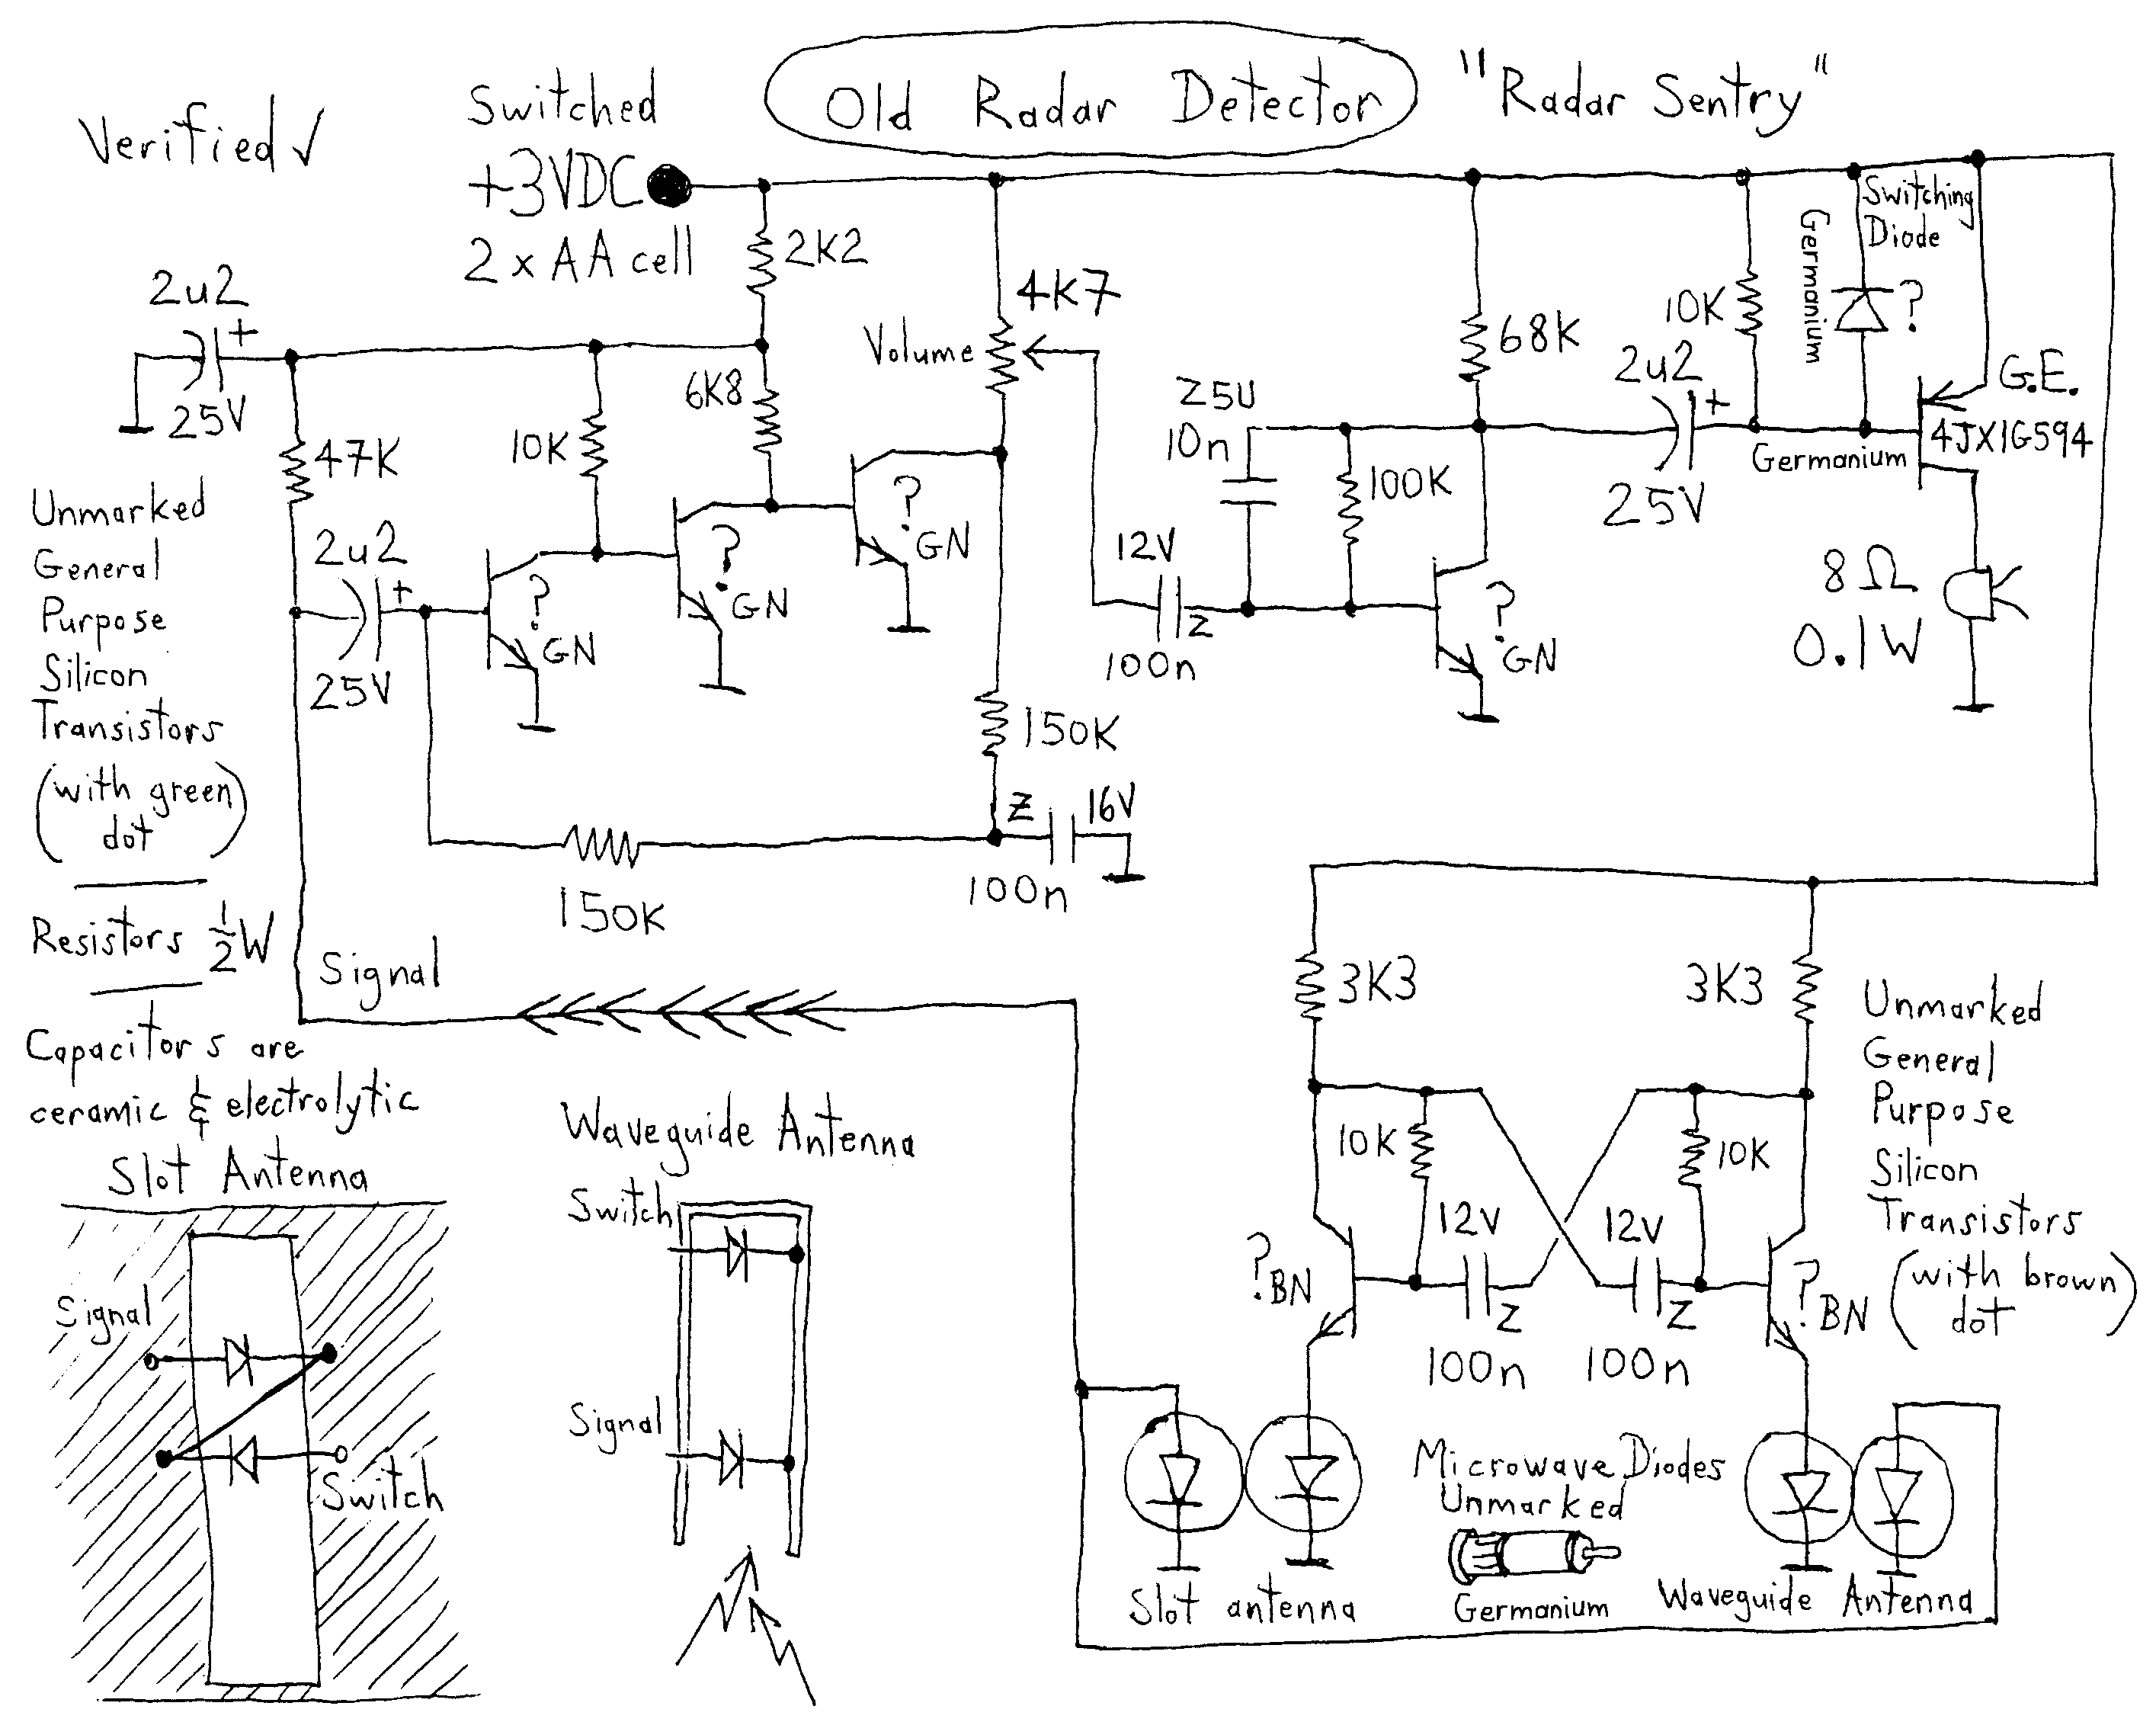 Old Radar Detector
"Radar Sentry"
Verified ✓
Switched
+3VDC
2 x AA cell
2K2
4K7
Volume
2u2
+
25V
47K
10K
6K8
2u2
+
25V
?
GN
?
GN
?
GN
150K
150K
Z
16V
100n
Z5U
10n
12V
Z
100n
100K
68K
?
GN
2u2
+
25V
10K
Germanium
Switching
Diode
?
G.E.
4JX1G594
Germanium
8Ω
0.1W
Unmarked
General
Purpose
Silicon
Transistors
(with green)
dot
Resistors ½W
Capacitors are
ceramic & electrolytic
Signal
Slot Antenna
Signal
Switch
Waveguide Antenna
Switch
Signal
3K3
3K3
10K
10K
12V
Z
100n
12V
Z
100n
?
BN
?
BN
Unmarked
General
Purpose
Silicon
Transistors
(with brown)
dot
Microwave Diodes
Unmarked
Germanium
Slot antenna
Waveguide Antenna